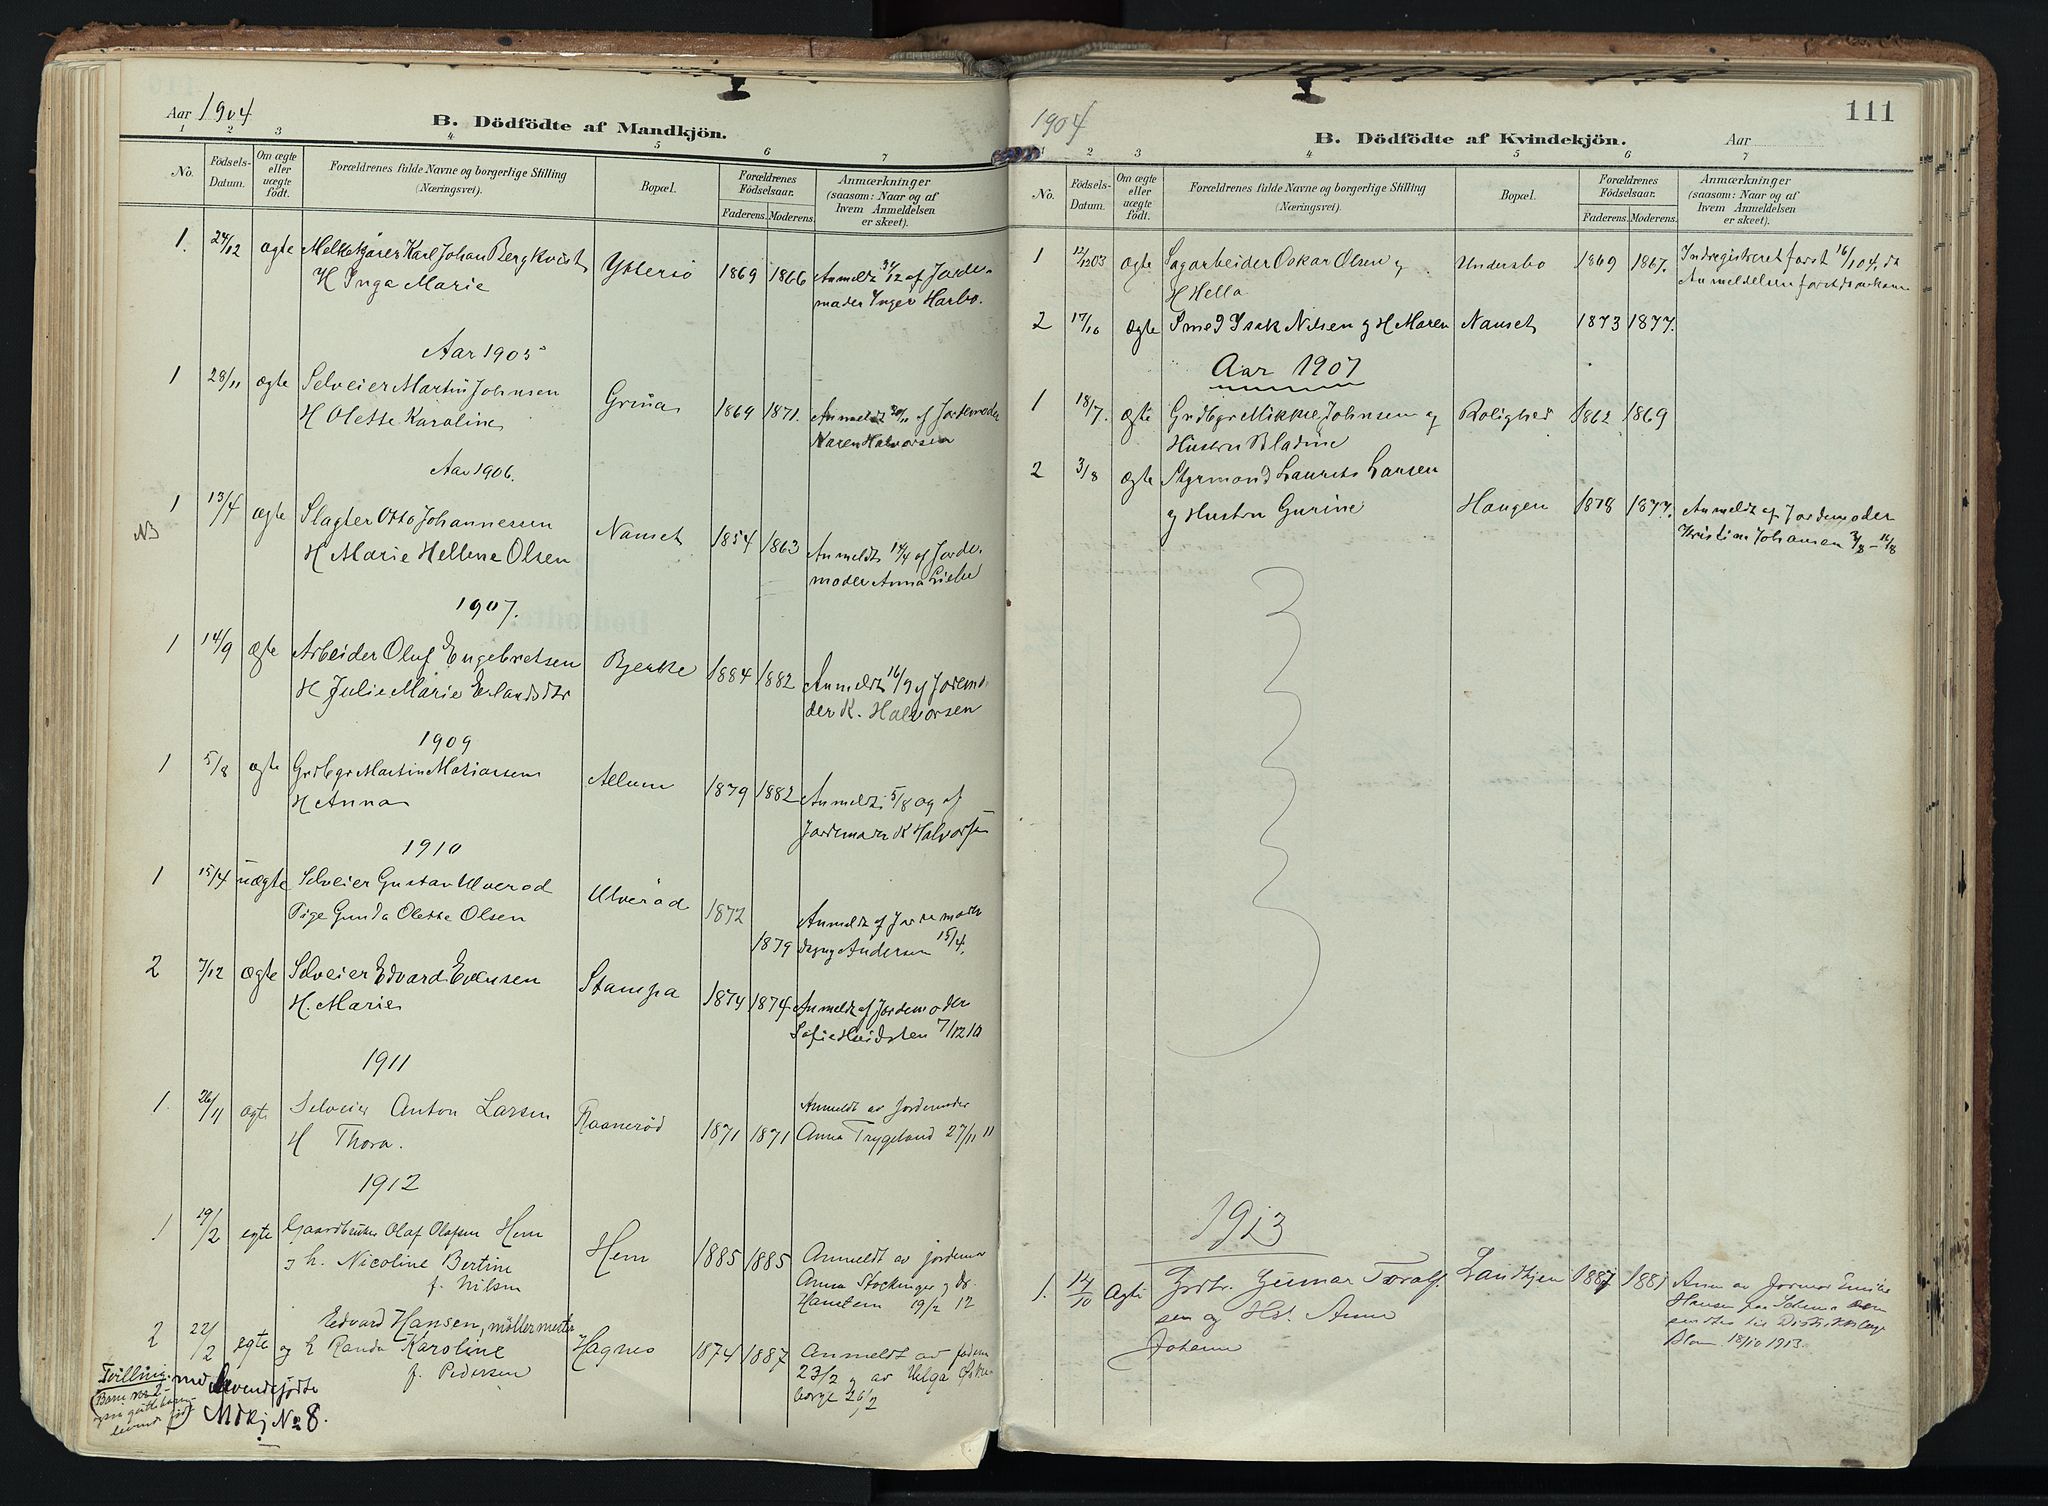 Aar 1904
B. Dödfödte af Mandkjön.
1 2 3 4 5 6 7
No.
Födsels-Datum.
Om ægte eller uægte födt.
Forældrenes fulde Navne og borgerlige Stilling (Næringsvei).
Bopæl.
Forældrenes Födselsaar.
Faderens. Moderens.
Anmærkninger (saasom: Naar og af hvem Anmeldelsen er skeet).
1. 24/12 ægte Melkekjører Karl Johan Bergkvist Yttersø 1869 1866 Anmeldt 31/12 af Jorde-
H Inga Marie
moder Inger Harbo.
Aar 1905
1 28/11 ægte Selveier Martin Johnsen Grinas 1869 1871. Anmeldt 30/11 af Jordemoder
H Olette Karoline
Maren Halvorsen
Aar 1906.
1 13/4 ægte Slagter Otto Johannessen Nanset 1854 1863 Anmeldt 14/4 af Jorde-
NB
H Marie Hellene Olsen
moder Anna Lible
1907.
1 14/9 ægte Arbeider Oluf Engebretsen Bjerke 1884 1882 Anmeldt 16/9 af Jordemo-
H Julie Marie Erlandsdtr
der K. Halvorsen
1909
1 5/8 ægte Grdbgr Martin Matiassen Allum 1879 1882 Anmeldt 5/8 09 af
H Anna
Jordemoder K Halvorsen
1910
1 15/4 uægte Selveier Gustav Ulverød Ulverød 1872
Pige Gunda Olette Olsen
1879
Anmeldt af Jordemoder
Andersen 15/4.
2 7/12 ægte Selveier Edvard Evensen Stampa 1874 1874 Anmeldt af Jordemoder
H. Marie
Sofie Heidsten 7/12 10
1911
1. 26/11 ægte Selveier Anton Larsen Raanerød 1871 1871 Anmeldt av Jordemoder
H Thora.
Anna Trygeland 27/11 11
1912
1 19/2 egte Gaardbruker Olaf Olafsen Hem Hem 1885 1885 Anmeldt av jordemor
og h. Nicoline Bertine
f. Nilsen
Anna Stockinger og dr.
Hanstein 19/2 12
2 22/2 egte Edvard Hansen, møllermester Hagnes 1874 1887 Anmeldt av faderen
og h Randa Karoline
f. Pedersen
23/2 og av Helga
26/2
Tvilling med levendefødte
Mdkj No 8.
1904
111
B. Dödfödte af Kvindekjön.
Aar
1 2 3 4 5 6 7
No.
Födsels-Datum.
Om ægte eller uægte födt.
Forældrenes fulde Navne og borgerlige Stilling (Næringsvei).
Bopæl.
Forældrenes Födselsaar.
Faderens. Moderens.
Anmærkninger (saasom: Naar og af hvem Anmeldelsen er skeet).
1 12/12 03 ægte Sagarbeider Oskar Olsen og Undersbo 1869 1867. Indregistreret først 16/1 04, da
H Hella
Anmeldelsen først da
2 17/10 ægte Smed Isak Nilsen og H Maren Nanset 1873 1877.
Aar 1907
1 18/7. ægte Grdbgr Mikkel Johnsen og Rolighed 1862 1869
Hustru Bladine
2 3/8 ægte Styrmand Laurits Larsen
og Hustru Gurine Haugen 1878 1877. Anmeldt af Jordemoder
Kristine Johansen 3/8 - 16/8
1913
1. 14/10 Ægte Grdbr. Gumar Toralf- Landhjem 1887 1881 Anm av Jormor Emilie
sen og Hst. Anne
Johanne
Hansen paa Schema
sendtes til Distriktslæge
18/10 1913.